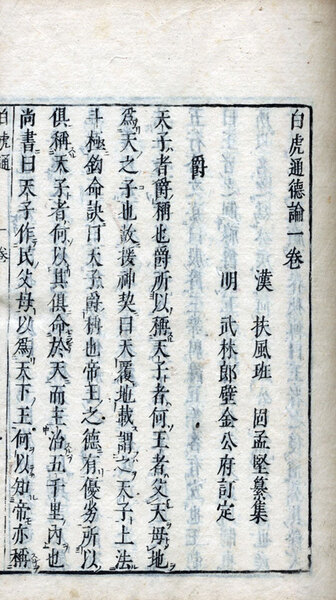 白虎通德論一卷
漢 扶風班 固孟堅纂集
明 武林郎壁金公府訂定
爵
天子者爵稱也爵所以稱天子者何王者父天母地
爲天之子也故援神契曰天覆地載謂之天子上法
斗極鈎命訣曰天子爵稱也帝王之德有優劣所以
俱稱天子者何以其俱命於天而主治五千里內也
尚書曰天子作民父母以爲天下王何以知帝亦稱
白虎通 一卷